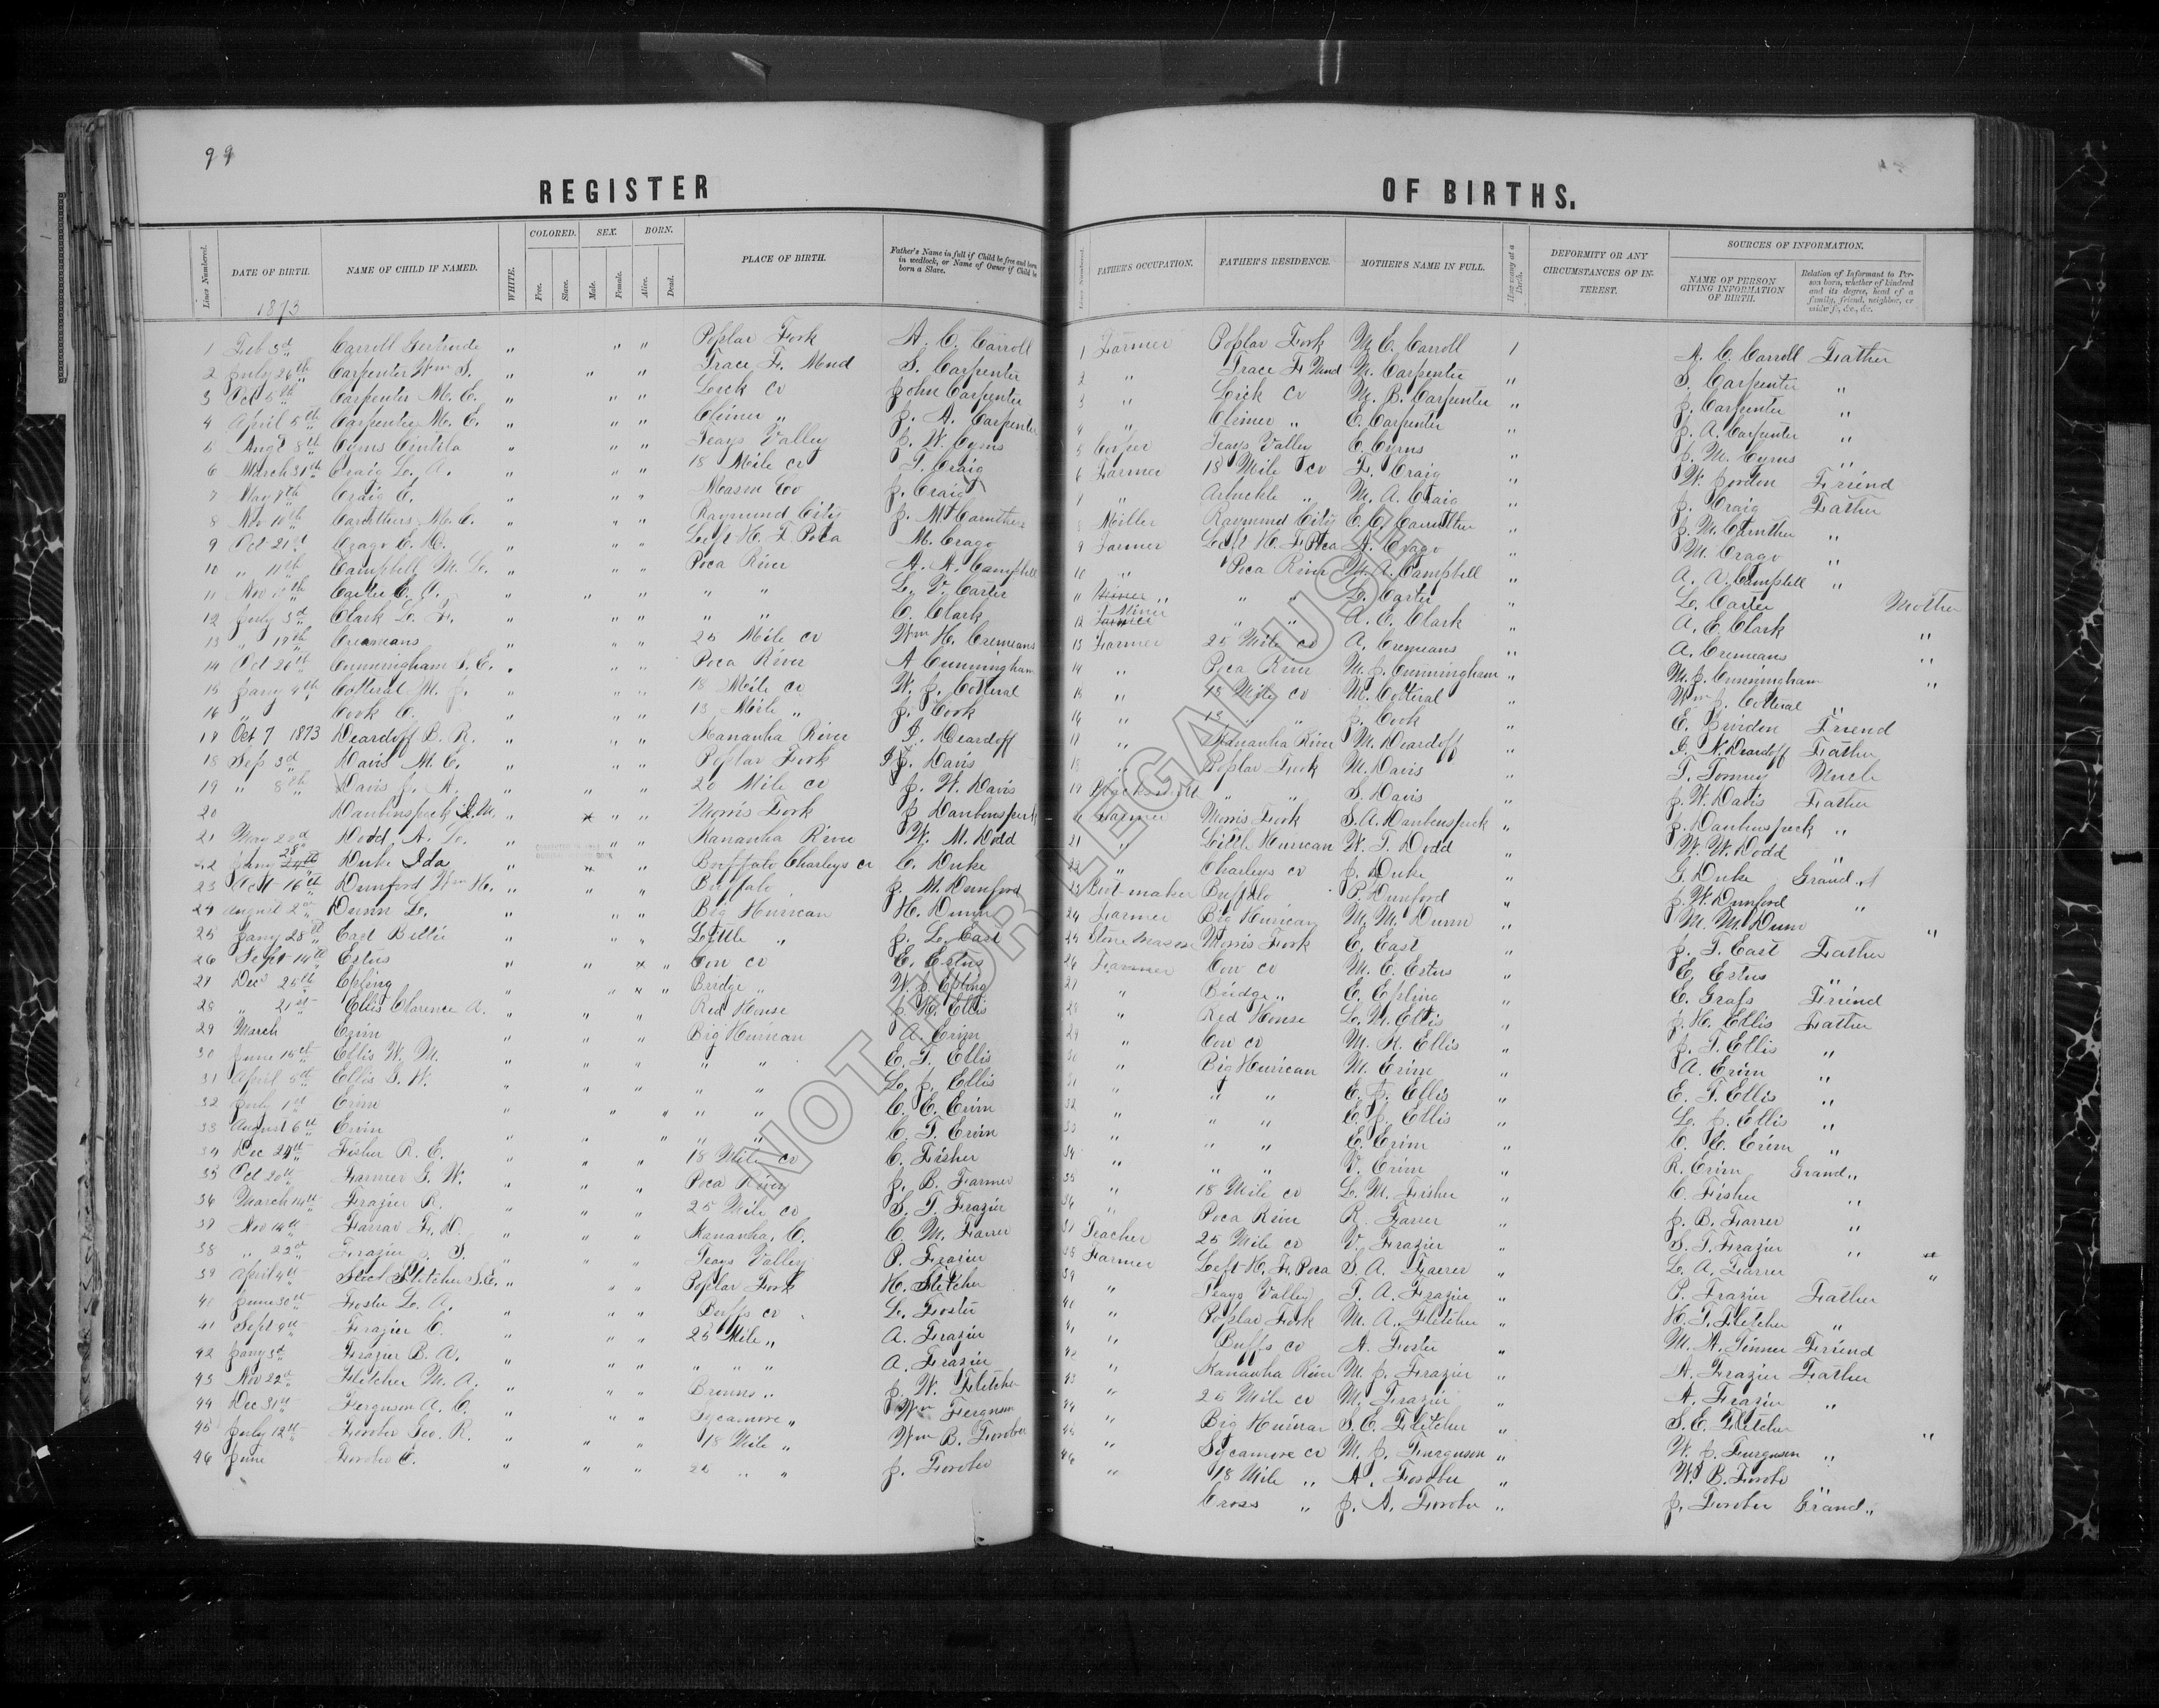 99
REGISTER OF BIRTHS.
Lines Numbered. DATE OF BIRTH. NAME OF CHILD IF NAMED. WHITE. COLORED. Free. Slave. SEX. Male. Female. BORN. Alive. Dead. PLACE OF BIRTH. Father's Name in full if Child be free and born in wedlock, or Name of Owner if Child be born a Slave.
Lines Numbered. FATHER'S OCCUPATION. FATHER'S RESIDENCE. MOTHER'S NAME IN FULL. How many at a Birth. DEFORMITY OR ANY CIRCUMSTANCES OF INTEREST. SOURCES OF INFORMATION. NAME OF PERSON GIVING INFORMATION OF BIRTH. Relation of Informant to Person born, whether of kindred and its degree, head of a family, friend, neighbor, or midwife, &c., &c.
1873
1 Feb 3d Carroll Gertrude " " " Poplar Fork A. C. Carroll
2 July 26th Carpenter Wm S. " " " Trace F. Mud S. Carpenter
3 Oct 5th Carpenter M. E. " " " Lick cr John Carpenter
4 April 5th Carpenter M. E. " " " Climer " J. A. Carpenter
5 Augt 8th Cyrus " " " Teays Valley J. W. Cyrus
6 March 31th Craig L. A. " " " 18 Mile cr T. Craig
7 May 7th Craig E. " " " Mason Co J. Craig
8 Nov 10th Caruthers M. C. " " " Raymond City J. M. Caruthers
9 Oct 21st Crago C. H. " " " Left H. F. Poca M. Crago
10 " 11th Campbell M. L. " " " Poca River A. A. Campbell
11 Nov Carter C. " " " " " L. V. Carter
12 July 3d Clark L. F. " " " " " C. Clark
13 " 19th Cremeans " " " 25 Mile cr Wm H. Cremeans
14 Oct 26th Cunningham S. E. " " " Poca River A Cunningham
15 Jany 4th Cotteral M. J. " " " 18 Mile cr W. J. Cotteral
16 " Cook C. " " " 13 Mile " J. Cook
17 Oct 7 1873 Deardoff B. R. " " " Kanawha River J. Deardoff
18 Sep 3d Davis M. E. " " " Poplar Fork J. Davis
19 " 8th Davis J. A. " " " 20 Mile cr J. W. Davis
20 Daubenspeck L. M. " x " " Morris Fork J Daubenspeck
21 May 22d Dodd A. L. " " " Kanawha River W. M. Dodd
22 Jany 28 Duke Ida " " Buffalo Charleys cr C. Duke
23 Oct 16th Dunford Wm H. " " " Buffalo J. M. Dunford
24 August 2d Dunn L. " " " Big Hurican H. Dunn
25 Jany 28th East Bettie " " " Little " J. L. East
26 Sept 14th Estus " " x " Cow cr E. Estus
27 Dec 25th Epling " " x " Bridge " W. J. Epling
28 " 21st Ellis Clarence A. " " " Red House J. H. Ellis
29 March Erim " " " Big Hurican A. Erim
30 June 15th Ellis W. M. " " " " " E. T. Ellis
31 April 5th Ellis G. W. " " " " " L. J. Ellis
32 July 1st Erim " " " " " C. E. Erim
33 August 6th Ervin " " " " " C. T. Ervin
34 Dec 24th Fisher R. E. " " " 18 Mile cr C. Fisher
35 Oct 20th Farmer G. W. " " " Poca River J. B. Farmer
36 March 14th Frazier R. " " " 25 Mile cr S. T. Frazier
37 Nov 14th Farrar F. D. " " " Kanawha C. C. M. Farrer
38 " 22d Frazier S. " Teays Valley P. Frazier
39 April 4th Fletcher S. E. " " " Poplar Fork H. Fletcher
40 June 30th Foster L. A. " " " Buffs cr L. Foster
41 Sept 9th Frazier C. " " " 25 Mile " A. Frazier
42 Jany 3d Frazier B. A. " " " " " " A. Frazier
43 Nov 22d Fletcher M. A. " " " Browns " J. W. Fletcher
44 Dec 31st Ferguson A. C. " " " Sycamore " Wm Ferguson
45 July 12th Fowler Geo. R. " " " 18 Mile " Wm B. Fowler
46 June Fowler E. " " " " " J. Fowler
1 Farmer Poplar Fork M. E. Carroll 1 A. C. Carroll Father
2 " Trace F Mud M. Carpenter " S. Carpenter "
3 " Lick cr M. B. Carpenter " J. Carpenter "
4 " Climer " E. Carpenter " J. A. Carpenter "
5 Cooper Teays Valley E. Cyrus " J. M. Cyrus "
6 Farmer 18 Mile cr F. Craig " W. Jordon Friend
7 " Arbuckle " M. A. Craig " J. Craig Father
8 Miller Raymond City E. C. Caruther " J. M. Caruther "
9 Farmer Left H. F Poca A. Crago " M. Crago "
10 " Poca River M. A. Campbell " A. A. Campbell "
11 " " " L. Carter " L. Carter Mother
12 Miner " " A. E. Clark " A. E. Clark "
13 Farmer 25 Mile cr A. Cremeans " A. Cremeans "
14 " Poca River M. J. Cunningham " M. J. Cunningham "
15 " 18 Mile cr M. Cotteral " Wm J. Cotteral "
16 " 13 " " J. Cook " E. Friend
17 " Kanawha River M. Deardoff " J. N. Deardoff Father
18 " Poplar Fork M. Davis T. Tomey Uncle
19 Blacksmith " " S. Davis " J. W. Davis Father
20 Farmer Morris Fork S. A. Daubenspeck " J. Daubenspeck "
21 " Little Hurican W. T. Dodd " W. W. Dodd "
22 " Charleys cr J. Duke " G. Duke Grand "
23 Boot maker Buffalo P. Dunford " J. W. Dunford "
24 Farmer Big Hurican M. M. Dunn " M. M. Dunn "
25 Stone Mason Morris Fork E. East " J. T. East Father
26 Farmer Cow cr M. E. Estus " E. Estus "
27 " Bridge " E. Epling " E. Grass Friend
28 " Red House L. M. Ellis " J. H. Ellis Father
29 " Cow cr M. R. Ellis " J. T. Ellis "
30 " Big Hurican M. Erim " A. Erim "
31 " " " E. J. Ellis " E. T. Ellis "
32 " " " E. J. Ellis " L. J. Ellis "
33 " " " E. Erim " C. E. Erim "
34 " " " V. Erim " R. Erim Grand "
35 " 18 Mile cr L. M. Fisher " C. Fisher "
36 " Poca River R. Farrer " J. B. Farrer "
37 Teacher 25 Mile cr V. Frazier " S. T. Frazier "
38 Farmer Left H. F. Poca S. A. Farrer " L. A. Farrer "
39 " Teays Valley T. A. Frazier " P. Frazier Father
40 " Poplar Fork M. A. Fletcher " H. T. Fletcher "
41 " Buffs cr A. Foster " M. A. Finner Friend
42 " Kanawha River M. J. Frazier " A. Frazier Father
43 " 25 Mile cr M. Frazier " A. Frazier "
44 " Big Hurican S. E. Fletcher " S. E. Fletcher "
45 " Sycamore cr M. J. Furguson " W. J. Furguson "
46 " 18 Mile " A. Fowler " W. B. Fowler "
Cross " J. A. Fowler " J. Fowler Grand "
NOT FOR LEGAL USE